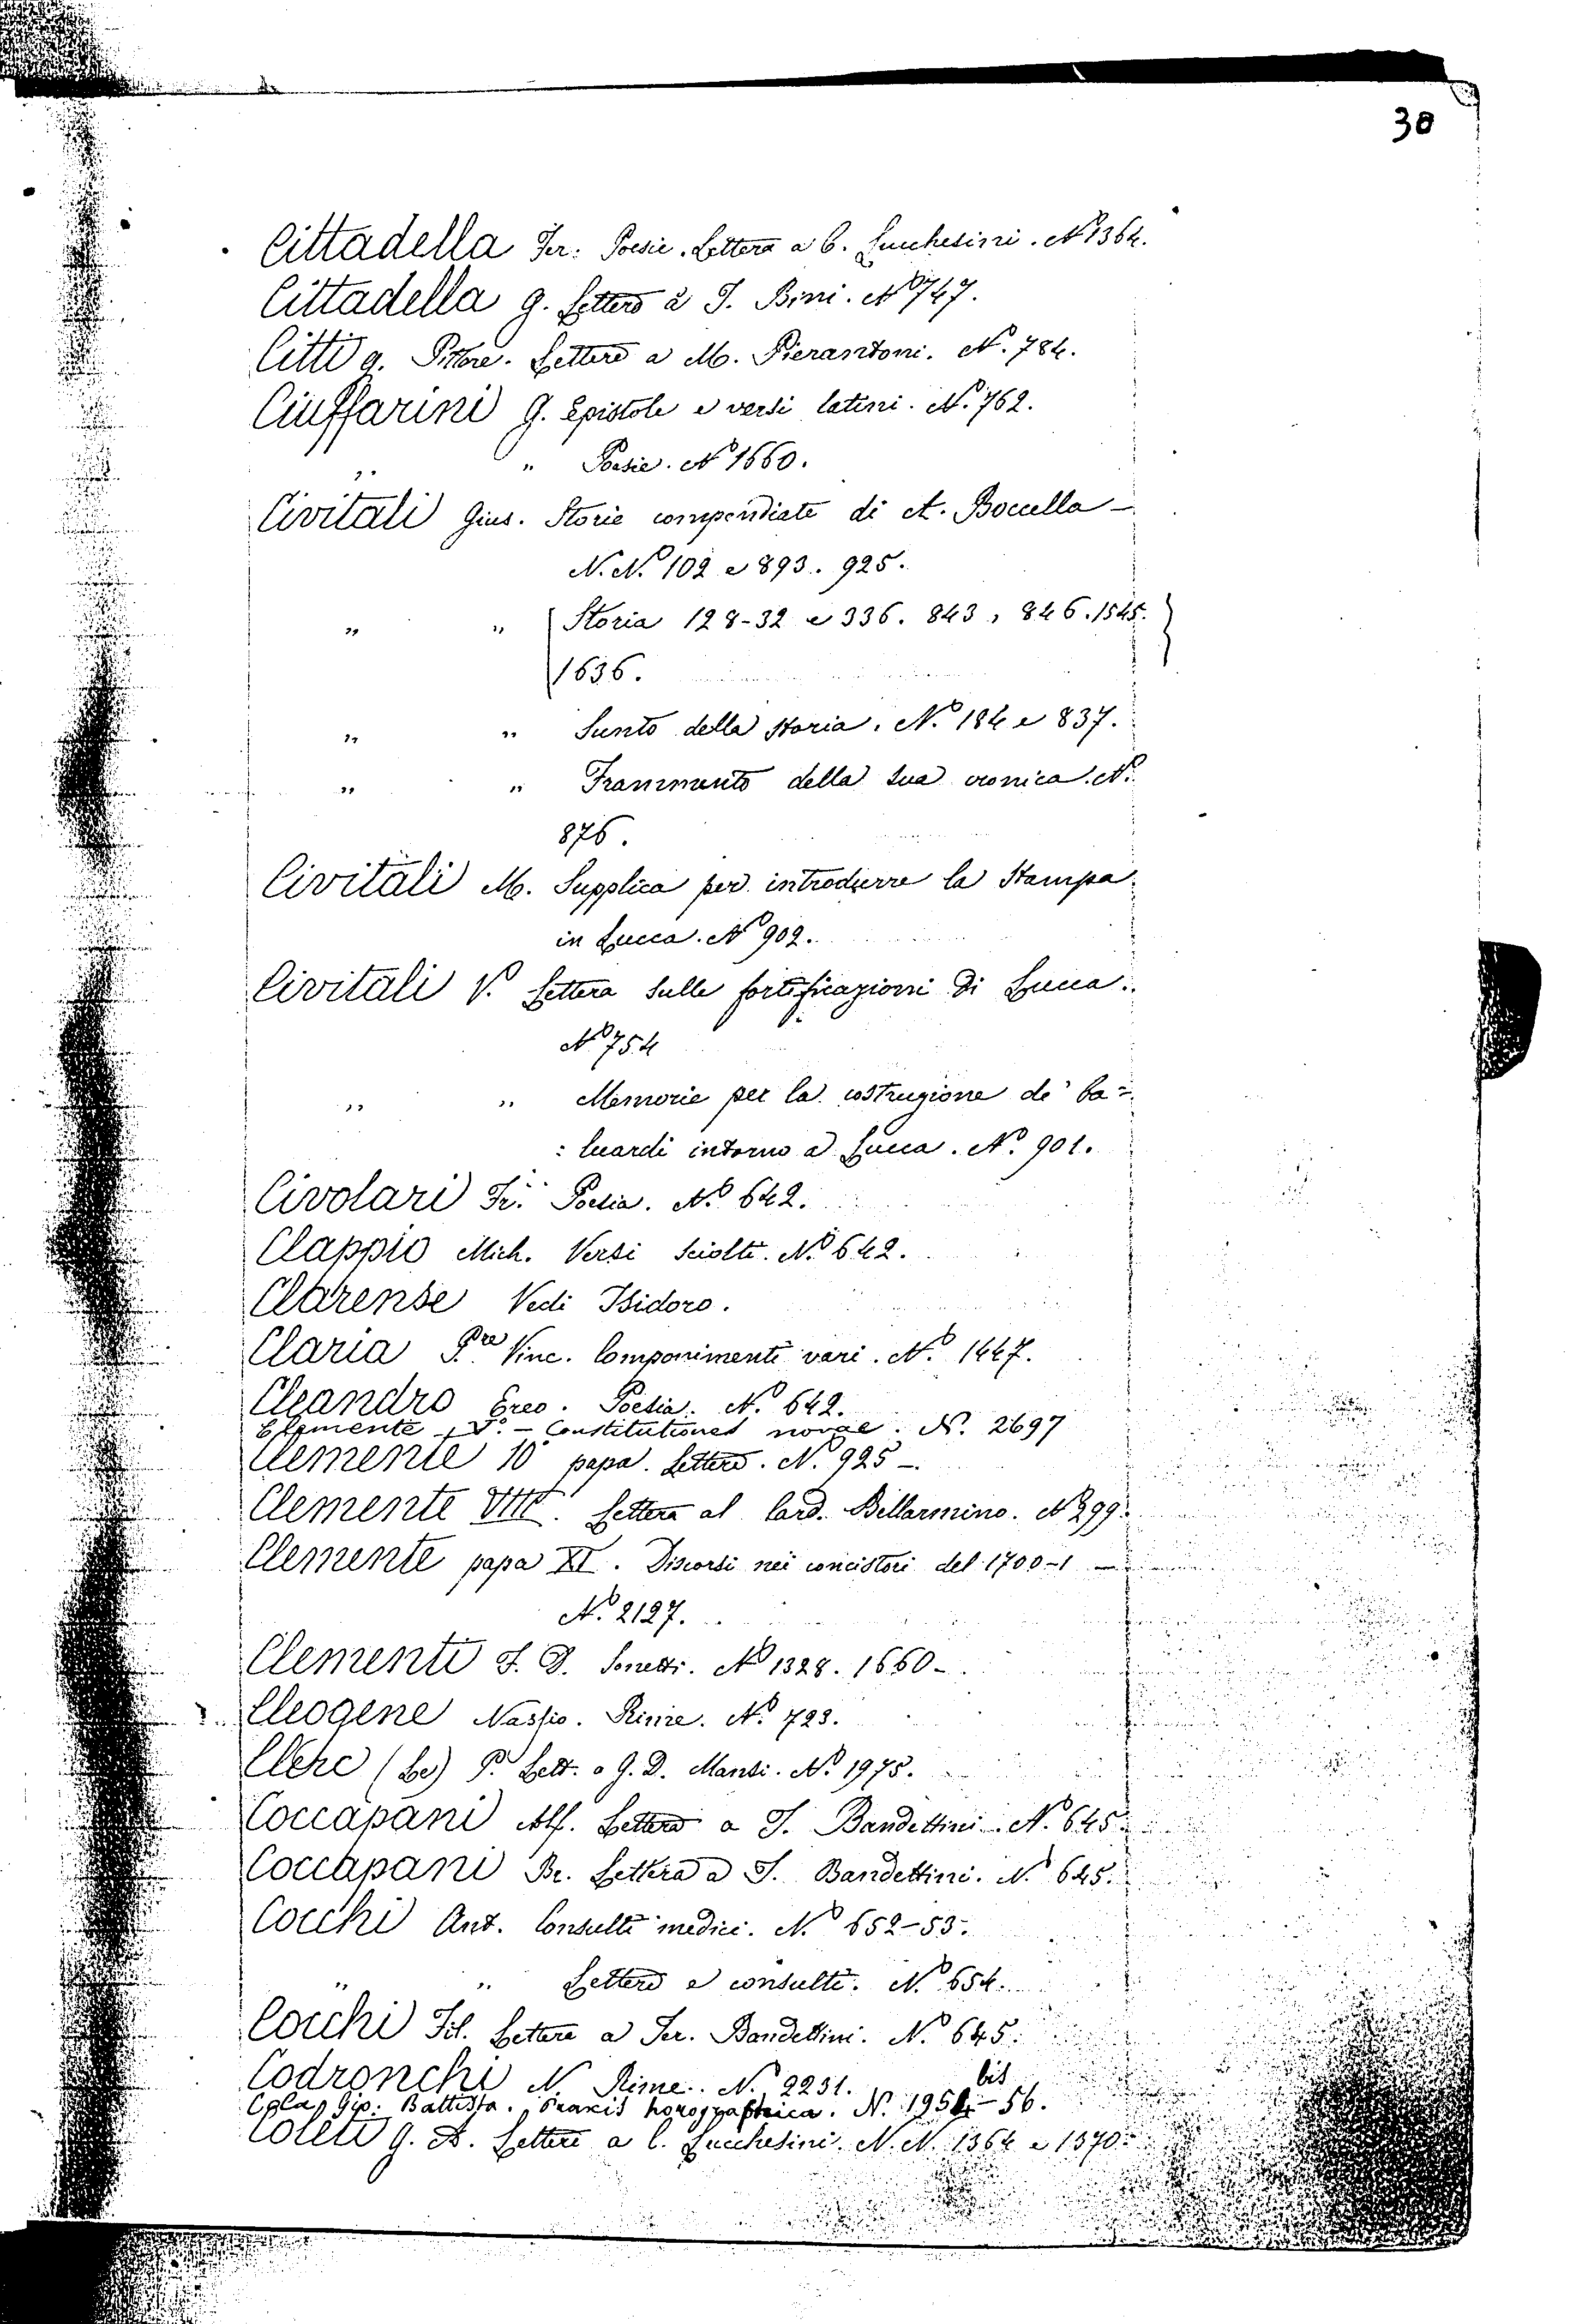 30
Cittadella Fer. Poesie. Lettera a C. Lucchesini. N.º 1364.
Cittadella G. Lettere a T. Bini. N.º 747.
Citti G. Pittore. Lettere a M. Pierantoni. N.º 784.
Ciuffarini G. Epistole e versi latini. N.º 762.
" " Poesie. N.º 1660.
Civitali Gius. Storie compendiate di A. Boccella –
N. N.º 102 e 893. 925.
" " Storia 128-32 e 336. 843, 846. 1545.
1636.
" " Sunto della storia. N.º 184 e 837.
" " Frammento della sua cronica. N.º
876.
Civitali M. Supplica per introdurre la stampa
in Lucca. N.º 902.
Civitali V. Lettera sulle fortificazioni di Lucca.
N.º 754
" " Memorie per la costruzione de' ba=
:luardi intorno a Lucca. N.º 901.
Civolari Fr. Poesia. N.º 642.
Clappio Mich. Versi sciolti. N.º 642.
Clarense Vedi Isidoro.
Claria P.re Vinc. Componimenti vari. N.º 1447.
Cleandro Ereo. Poesia. N.º 642.
Clemente V.º – Constitutiones novae. N. 2697
Clemente 10º papa. Lettere. N.º 925 –.
Clemente VIII. Lettera al Card. Bellarmino. N.º 299.
Clemente papa XI. Discorsi nei concistori del 1700-1 –
N.º 2127.
Clementi F. D. Sonetti. N.º 1328. 1660 –.
Cleogene Nassio. Rime. N.º 723.
Clerc (Le) P. Lett. a G. D. Mansi. N.º 1975.
Coccapani Alf. Lettere a T. Bandettini. N.º 645.
Coccapani Br. Lettera a T. Bandettini. N.º 645.
Cocchi Ant. Consulti medici. N.º 652-53.
" " Lettere e consulti. N.º 654.
Cocchi Fil. Lettere a Ter. Bandettini. N.º 645.
Codronchi N. Rime. N.º 2231.
Cola, Gio: Battista. Praxis horographica. N. 1954 bis – 56.
Coleti G. A. Lettere a C. Lucchesini. N. N. 1364 e 1370.